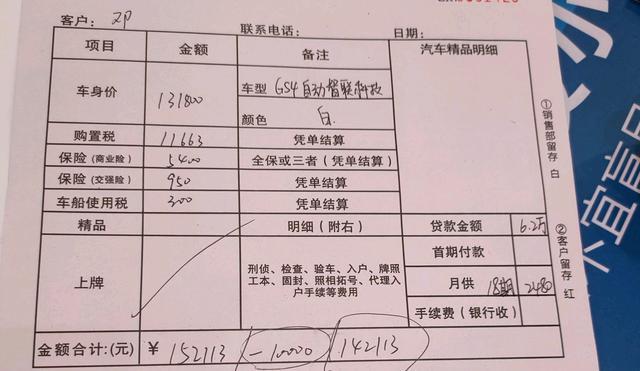 客户： 邓 联系电话： 日期：
项目 金额 备注 汽车精品明细
车身价 131800 车型 GS4自动智联科技
颜色 白
购置税 11663 凭单结算
保险（商业险） 5400 全保或三者（凭单结算）
保险（交强险） 950 凭单结算
车船使用税 300 凭单结算
精品 明细（附右） 贷款金额 6.2万
首期付款
上牌 刑侦、检查、验车、入户、牌照
工本、固封、照相拓号、代理入
户手续等费用
月供 18期 2480
手续费（银行收）
金额合计:(元) ￥ 152113 -10000 142113
①销售部留存 白
②客户留存 红
宜宾